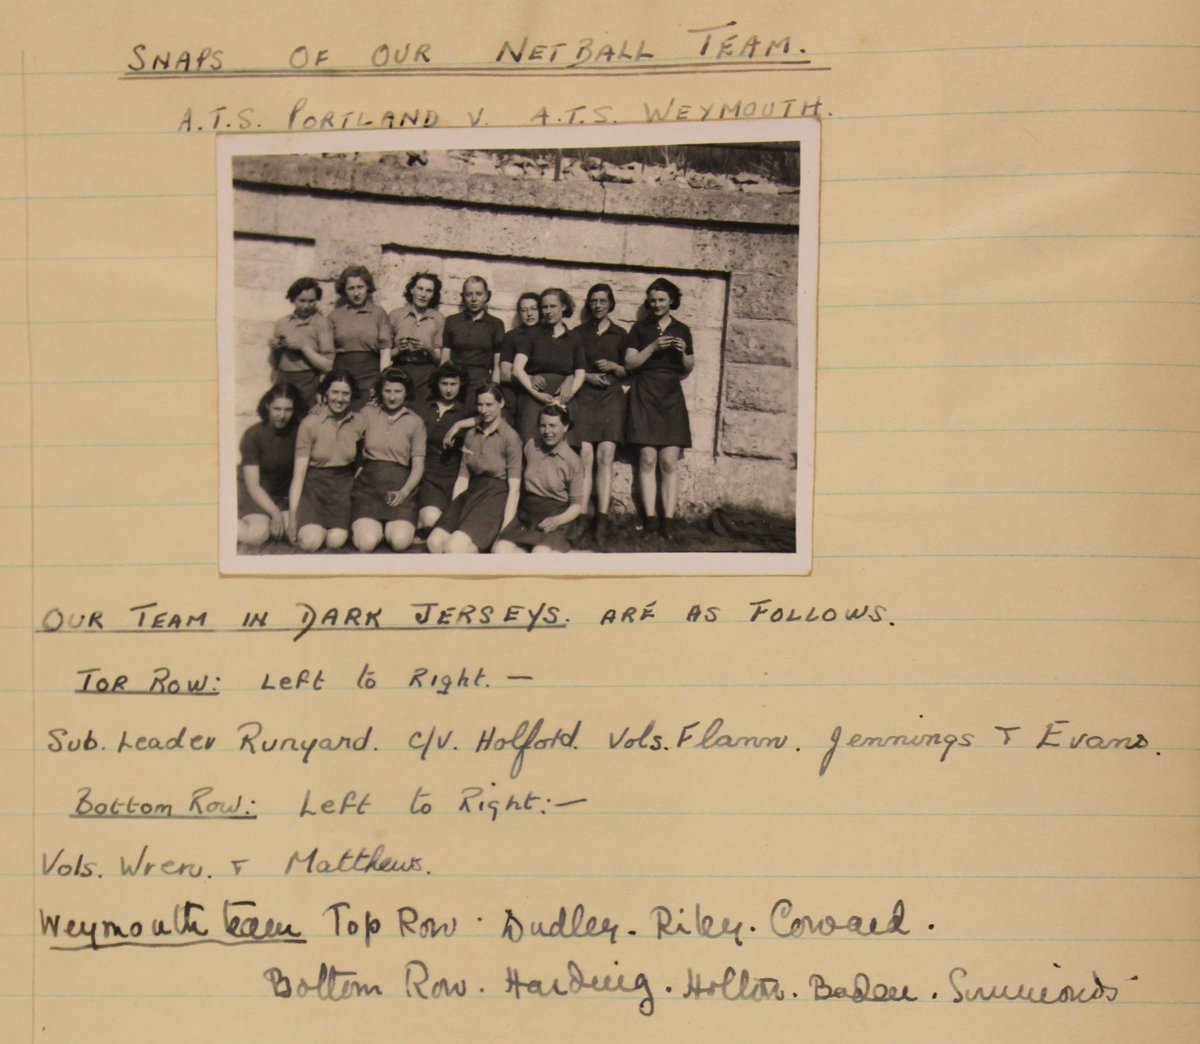 SNAPS OF OUR NETBALL TEAM.
A.T.S. PORTLAND V. A.T.S. WEYMOUTH.
OUR TEAM IN DARK JERSEYS. ARE AS FOLLOWS.
TOP ROW: Left to Right. —
Sub. Leader Runyard. C/V. Holford. Vols. Flann. Jennings & Evans.
Bottom Row: Left to Right:—
Vols. Wren. & Matthews.
Weymouth team Top Row. Dudley. Riley. Coward.
Bottom Row. Harding. Hollow. Baden. Simmonds